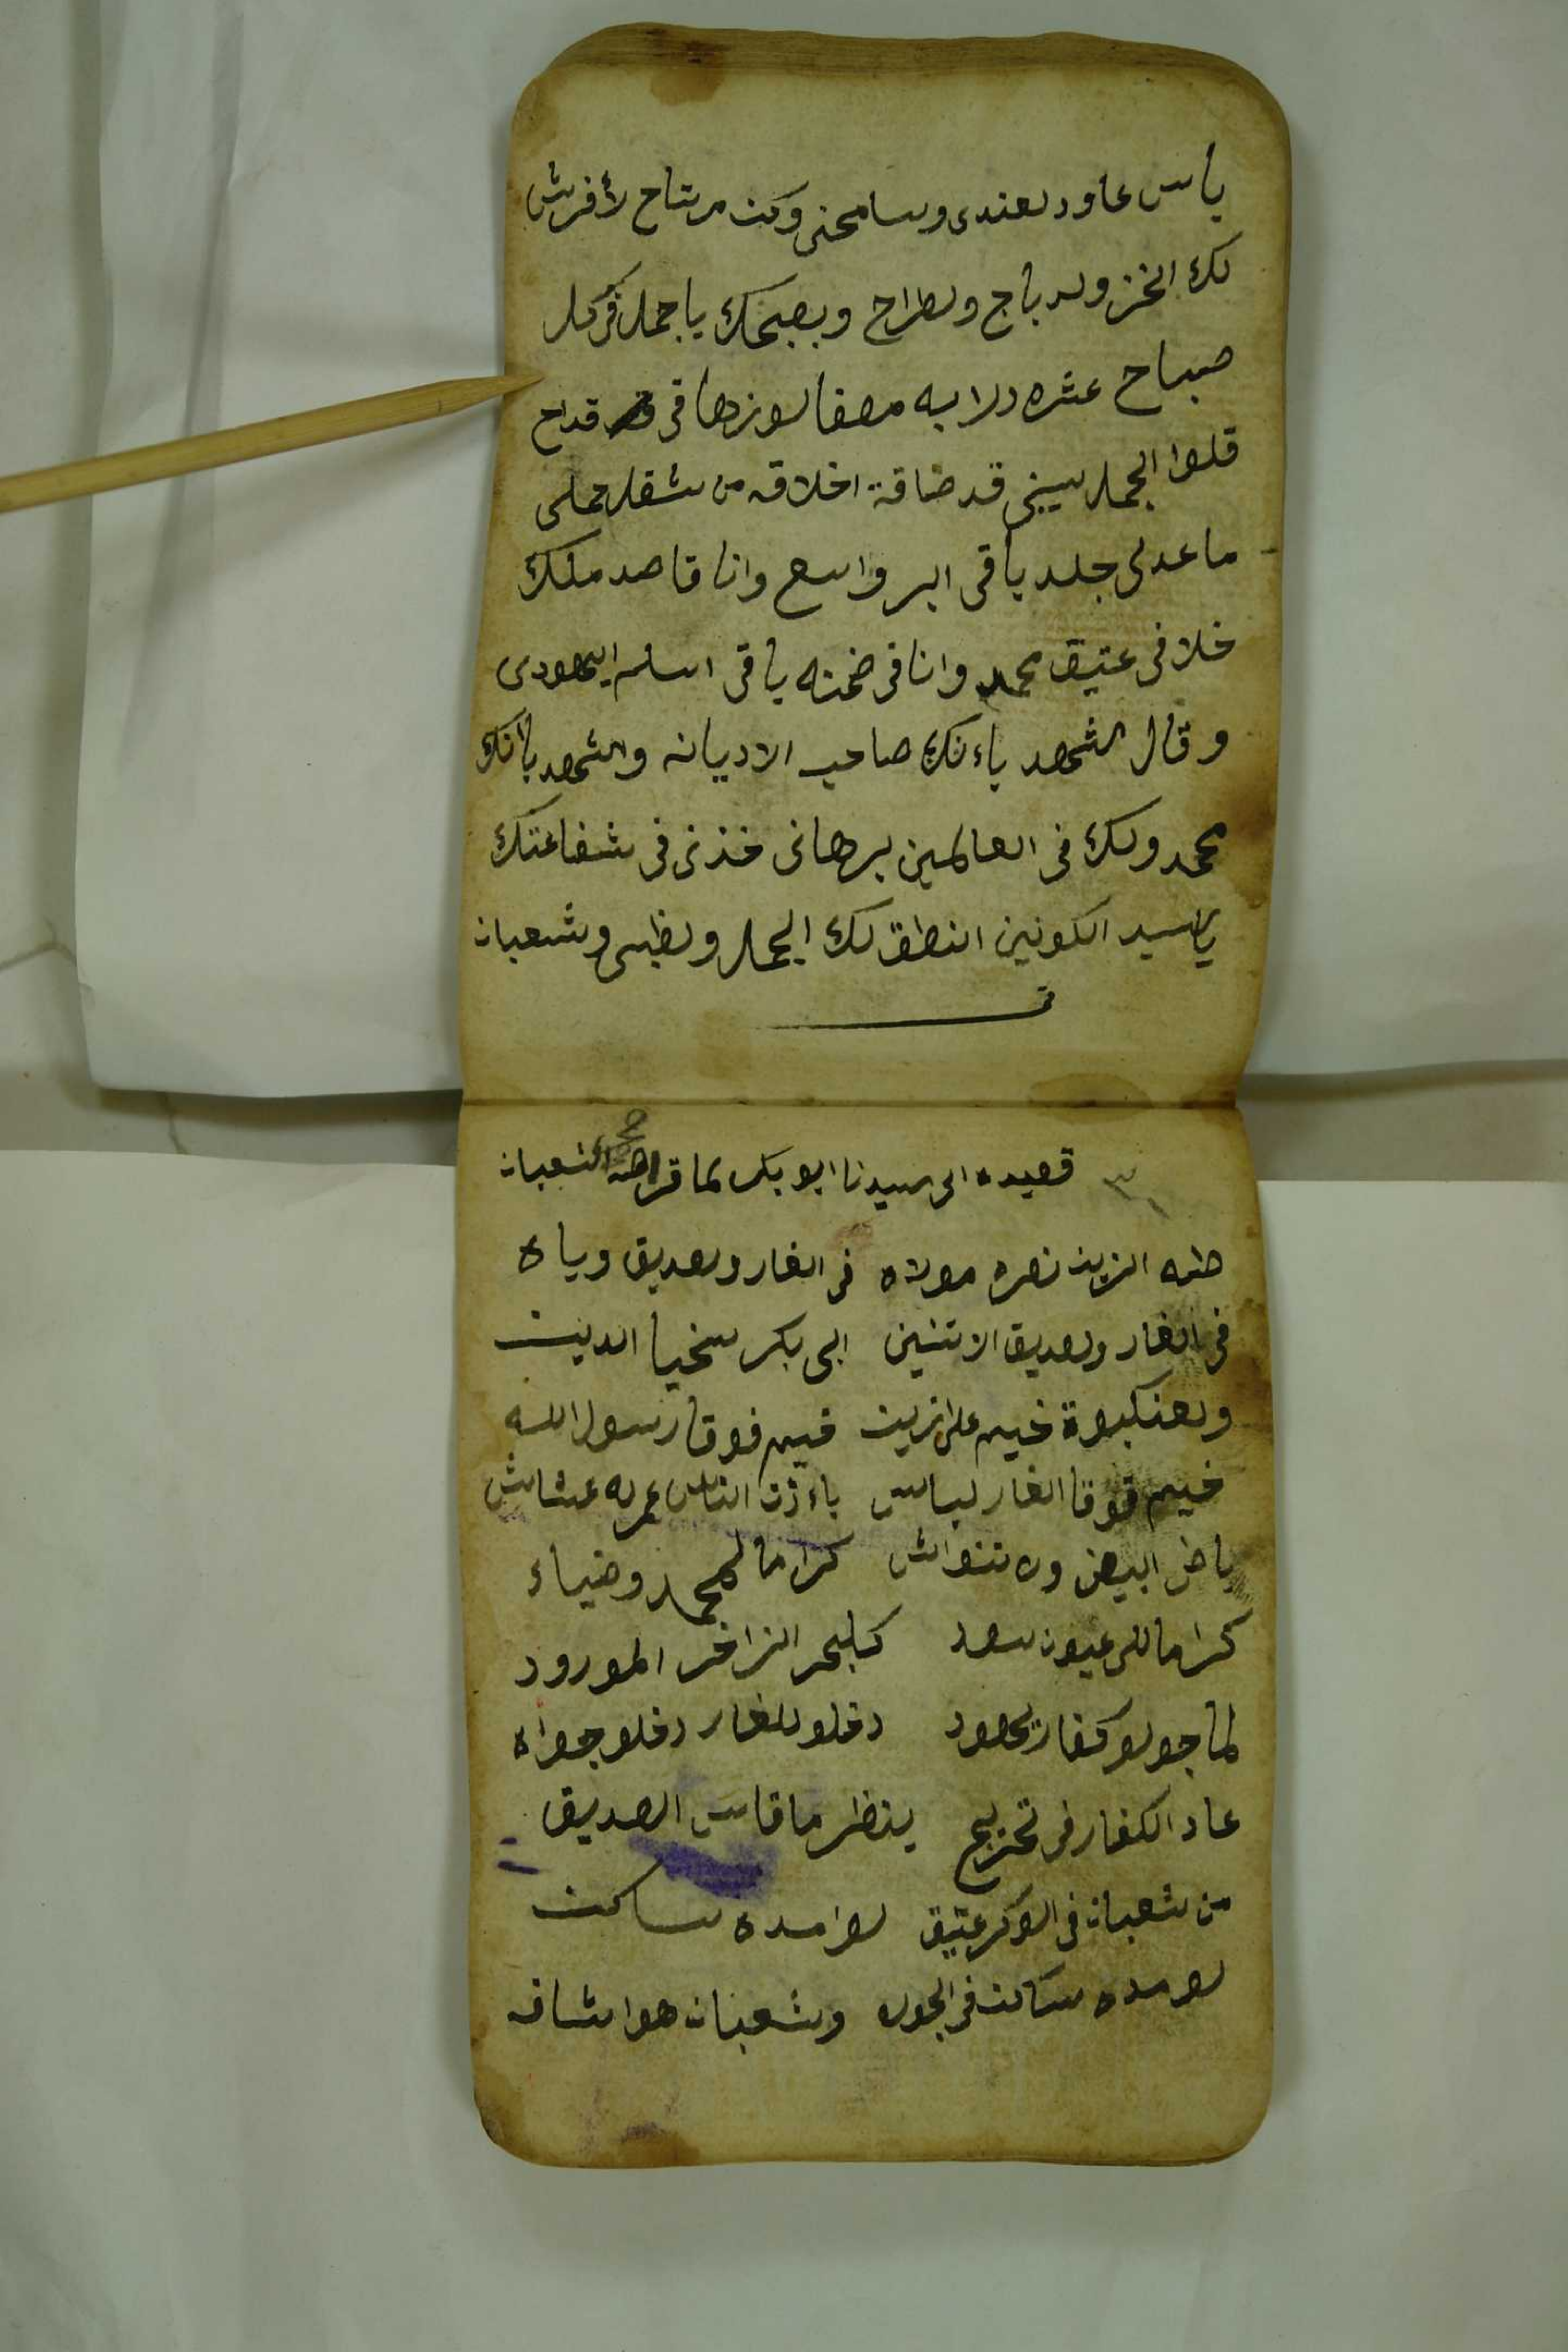 ياس عاود لعندى وسامحنى وكنت مرتاح لأفرش
لك الخز ولدباج ولطراح وبصبحك ياجمل فى كل
صباح عشره دلابه مصفا لوزها فى قداح
قلوا الجمل سيبنى قد ضاقة اخلاقه من شقل حملى
ما عدلى جلد باقى البر واسع وانا قاصد ملك
خلا فى عتيق محمد وانا فى ضمنه باقى اسلم اليهودى
وقال اشهد باءنك صاحب الاديانه واشهد باانك
محمد ولك فى العالمين برهانى خذنى فى شفاعتك
يا سيد الكونين انطق لك الجمل ولظبى وشعبان
تمـ
قصيده الى سيدنا ابو بكر لما قراصه الشعبان
طه الزين نصره مولاه فى الغار ولصديق وياه
فى الغار ولصديق الاتنين ابى بكر سخيا الدين
ولعنكبوة خيم على الزين خيم فوقا رسول الله
خيم فوقا الغار لباس باءذن الناس عمر له عشاش
باض البيض وله تنواش كراما لمحمد وضياء
كراما للى عيون سود كلبحر الزاخر المورود
لما جولو كفار يهود دخلو للغار دخلو جواه
عاد الكفار فى تحزيج ينظر ما قاس الصديق
من شعبان فى الوكر عتيق لوا مده ساكن
لو مده ساكن فى الجوله وشعبان هوا شافه